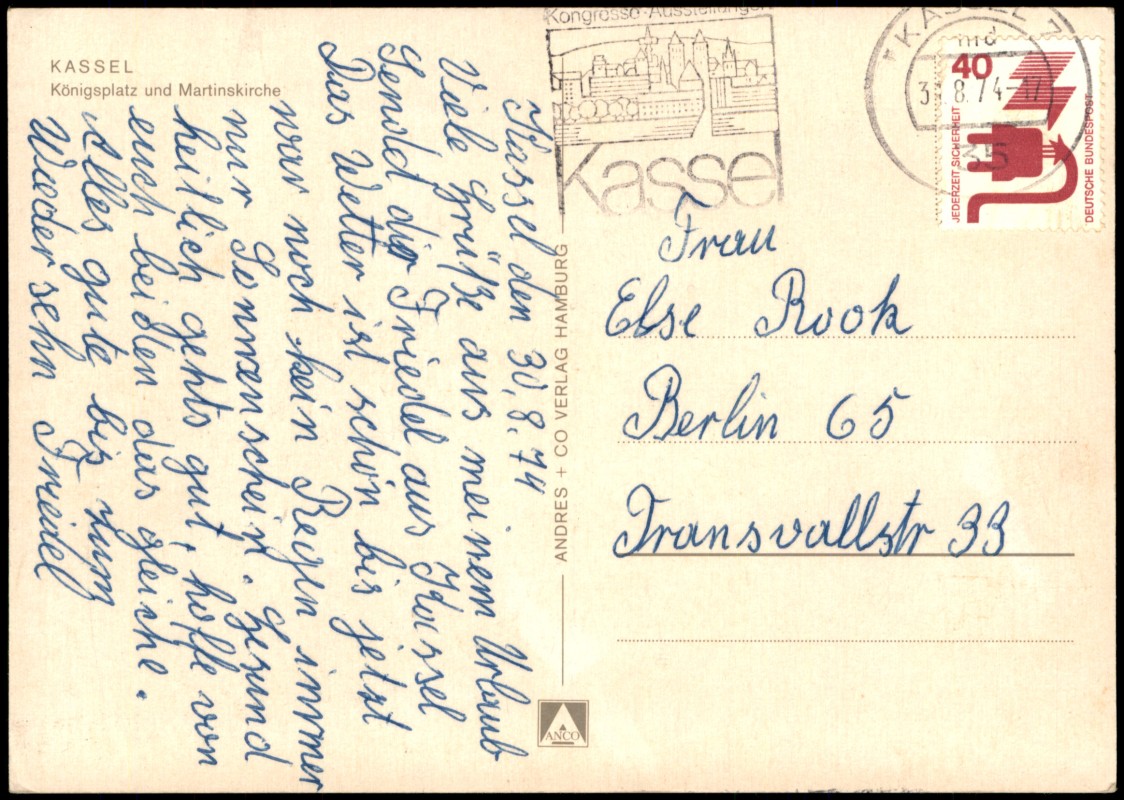 KASSEL
Königsplatz und Martinskirche
Kassel den 30.8.74
Viele Grüße aus meinem Urlaub
Sendet dir Friedel aus Kassel
Das Wetter ist schön bis jetzt
war noch kein Regen immer
nur Sonnenschein. Gesund
heitlich gehts gut, hoffe von
euch beiden das gleiche.
Alles gute bis zum
Wiedersehn Friedel
ANDRES + CO VERLAG HAMBURG
ANCO
Kongresse-Ausstellungen
Kassel
KASSEL 7
8.74-17
35
40
JEDERZEIT SICHERHEIT
DEUTSCHE BUNDESPOST
Frau
Else Rook
Berlin 65
Transvallstr 33